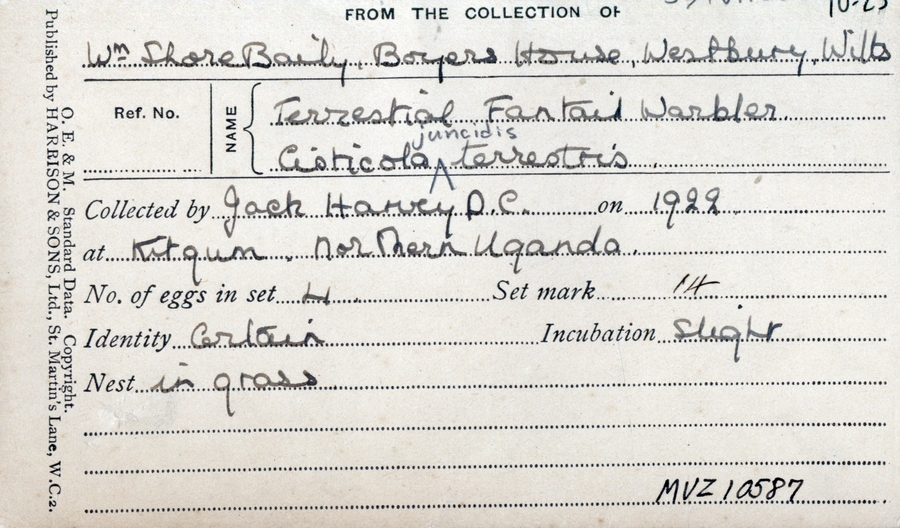 FROM THE COLLECTION OF
10-25
Wm Shore Baily. Boyers House, Westbury, Wilts
Ref. No.
NAME
Terrestial Fantail Warbler
juncidis
Cisticola ^ terrestris
Collected by Jack Harvey D.C. on 1922
at Kitgum. Northern Uganda.
No. of eggs in set 4. Set mark 1/4
Identity Certain Incubation Slight
Nest in grass
MVZ 10587
O. E. & M. Standard Data. Copyright.
Published by HARRISON & SONS, Ltd., St. Martin's Lane, W.C.2.